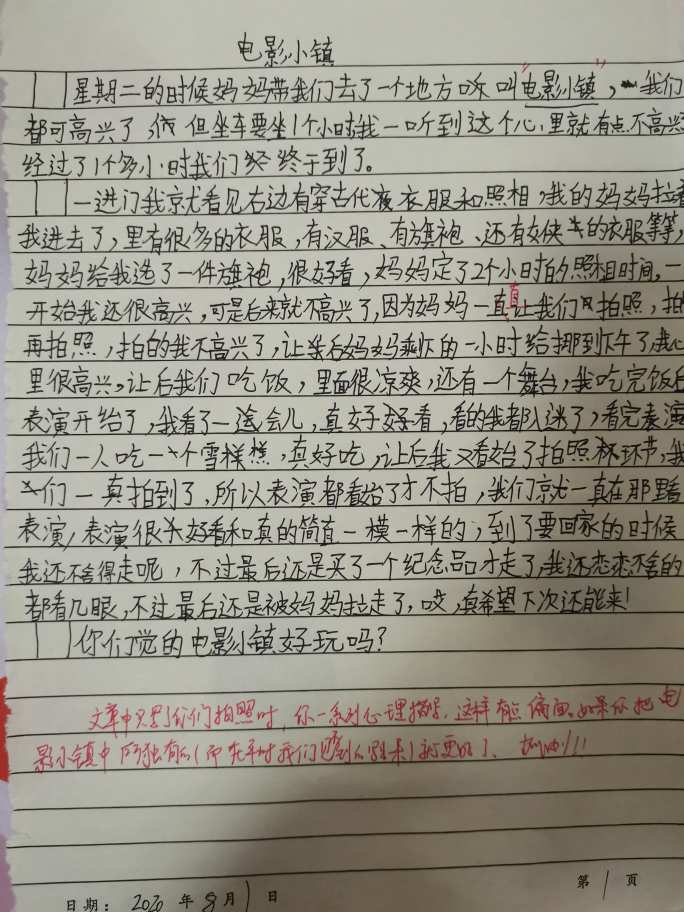 电影小镇
星期二的时候妈妈带我们去了一个地方 叫"电影小镇",我们
都可高兴了,但坐车要坐1个小时我一听到这个心里就有点不高兴
经过了1个多小时我们终于到了。
一进门我就看见右边有穿古代衣服和照相,我的妈妈拉着
我进去了,里有很多的衣服,有汉服、有旗袍、还有女侠的衣服等等,
妈妈给我选了一件旗袍,很好看,妈妈定了2个小时的照相时间,一
开始我还很高兴,可是后来就不高兴了,因为妈妈一直让我们拍照,拍
再拍照,拍的我不高兴了,让后妈妈剩下的一小时给挪到下午了,我心
里很高兴。让后我们吃饭,里面很凉爽,还有一个舞台,我吃完饭后
表演开始了,我看了一会儿,真好好看,看的我都入迷了,看完表演
我们一人吃一个雪糕,真好吃,让后我又开始了拍照环节,我
们一真拍到了,所以表演都开始了才不拍,我们就一直在那里看
表演,表演很好看和真的简直一模一样的,到了要回家的时候
我还不舍得走呢,不过最后还是买了一个纪念品才走了,我还恋恋不舍的
都看几眼,不过最后还是被妈妈拉走了,哎,真希望下次还能来!
你们觉的电影小镇好玩吗?
文章中只写你们拍照时,你一系列心理描写,这样有点偏面。如果你把电
影小镇中所独有的(而先平时我们见到的
加油!!!
第1页
日期:2020年8月1日